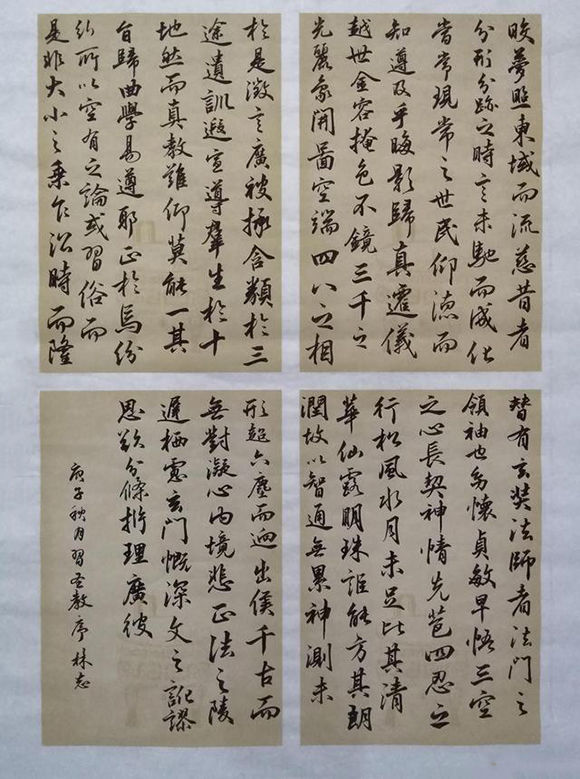 皎夢照東域而流慈昔者
分形分跡之時言未馳而成化
當常現常之世民仰德而
知遵及乎晦影歸真遷儀
越世金容掩色不鏡三千之
光麗象開圖空端四八之相
於是微言廣被拯含類於三
途遺訓遐宣導群生於十
地然而真教難仰莫能一其
旨歸曲學易遵耶正於焉紛
糺所以空有之論或習俗而
是非大小之乘乍沿時而隆
替有玄奘法師者法門之
領袖也幼懷貞敏早悟三空
之心長契神情先苞四忍之
行松風水月未足比其清
華仙露明珠詎能方其朗
潤故以智通無累神測未
形超六塵而迥出隻千古而
無對凝心內境悲正法之陵
遲栖慮玄門慨深文之訛謬
思欲分條析理廣彼
庚子秋月習聖教序林志